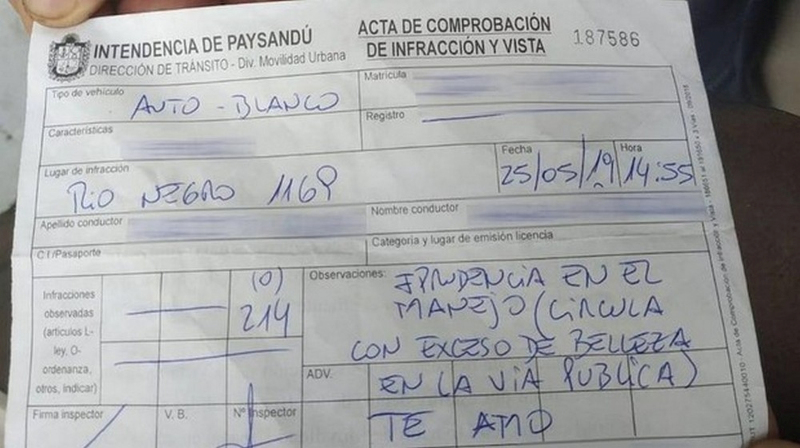 INTENDENCIA DE PAYSANDÚ
DIRECCIÓN DE TRÁNSITO - Div. Movilidad Urbana
ACTA DE COMPROBACIÓN
DE INFRACCIÓN Y VISTA
187586
Tipo de vehículo
AUTO - BLANCO
Matrícula
Características
Registro
Lugar de infracción
RIO NEGRO 1169
Fecha
25/05/19
Hora
14:55
Apellido conductor
Nombre conductor
C.I./Pasaporte
Categoría y lugar de emisión licencia
Infracciones
observadas
(artículos L-
ley, O-
ordenanza,
otros, indicar)
(O)
214
Observaciones:
IPRUDENCIA EN EL
MANEJO (CIRCULA
CON EXCESO DE BELLEZA
EN LA VIA PUBLICA)
TE AMO
ADV.
Firma inspector
V. B.
Nº Inspector